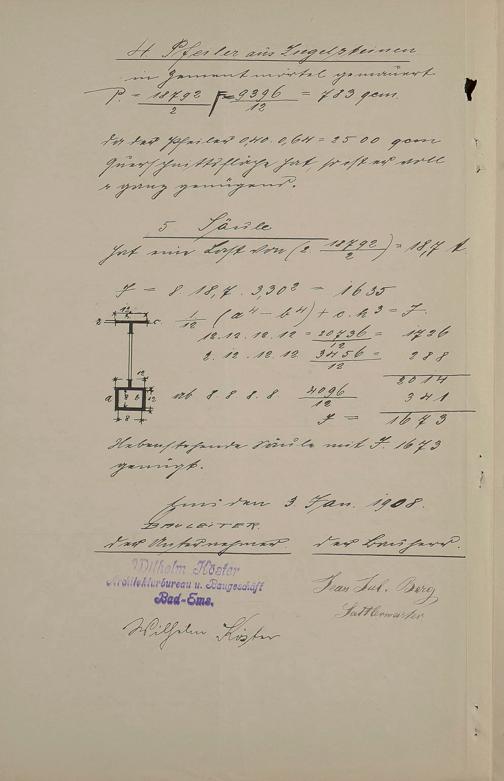 4. Pfeiler aus Ziegelsteinen
in Zementmörtel gemauert
P. = 18792/2 F = 9396/12 = 783 qcm.
da der Pfeiler 0,40 . 0,64 = 2500 qcm
Querschnittsfläche hat, so ist er voll
u ganz genügend.
5 Säule
hat eine Last von (2 . 18792/2) = 18,7 t
J = 8 . 18,7 . 3,30² = 1635
1/12 (a⁴ - b⁴) + c . h³ = J.
12. 12. 12. 12 = 20736/12 = 1726
2. 12. 12. 12 3456/12 = 288
2014
ab 8 8 8. 8 4096/12 341
J = 1673
12
2
c
12
a
8
b
12
8
Nebenstehende Säule mit J. 1673
genügt.
Ems den 3. Jan. 1908.
BAULEITER.
der Unternehmer. der Bauherr.
Wilhelm Köster
Architekturbureau u. Baugeschäft
Bad-Ems.
Wilhelm Köster
Jean Jul. Berg
Sattlermeister